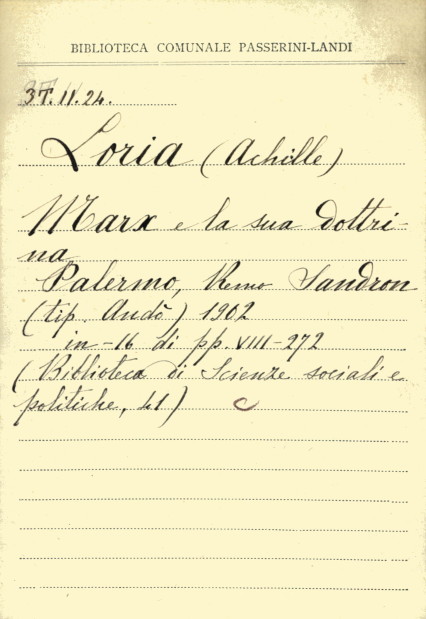 BIBLIOTECA COMUNALE PASSERINI-LANDI
3T.11.24.
Loria (Achille)
Marx e la sua dottri-
na
Palermo, Remo Sandron
(tip. Andò) 1902
in-16 di pp. VIII-272
(Biblioteca di Scienze sociali e
politiche, 41)
C